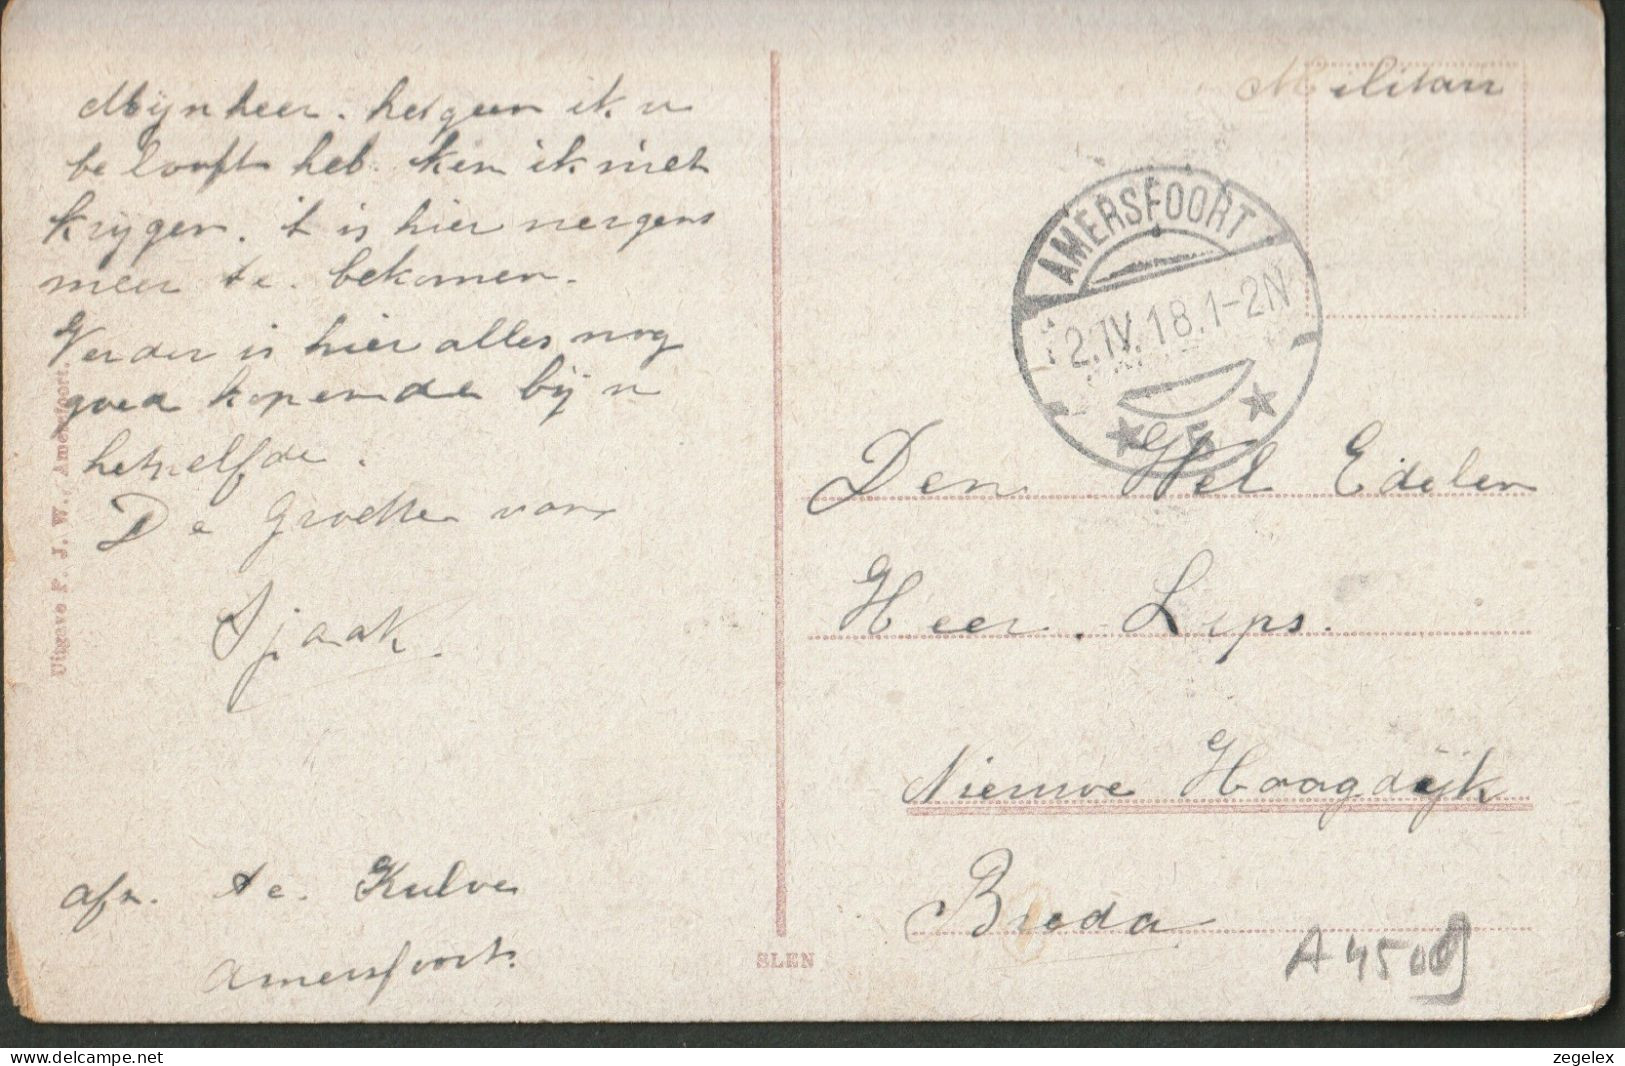 Mijnheer. hetgeen ik u
belooft heb. ken ik niet
krijgen. t is hier nergens
meer te. bekomen.
Verder is hier alles nog
goed hopende bij u
hetzelfde.
De Groetten van
Sjaak.
afz. te. Kulve
Amersfoort.
Uitgave F. J. W., Amersfoort.
SLEN
Militair
AMERSFOORT
2.IV.18.1-2N
5
Den Wel Edelen
Heer. Lips.
Nieuwe Haagdijk
Breda
A 4500
Website: https://www.delcampe.net/en_GB/item/2147493166.html
zegelex